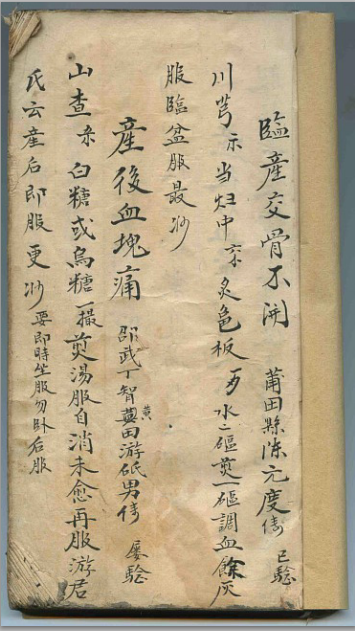 臨產交骨不開 莆田縣陈元度傳 已騐
川芎 当归中 炙龜板 水二碗煎一碗調血餘灰
服臨盆服最妙
產後血塊痛 邵武丁智 黄田游砥男傳 屡騐
山查 白糖或烏糖一撮煎湯服自消未愈再服游君
氏云產后即服更妙 要即時坐服勿卧后服